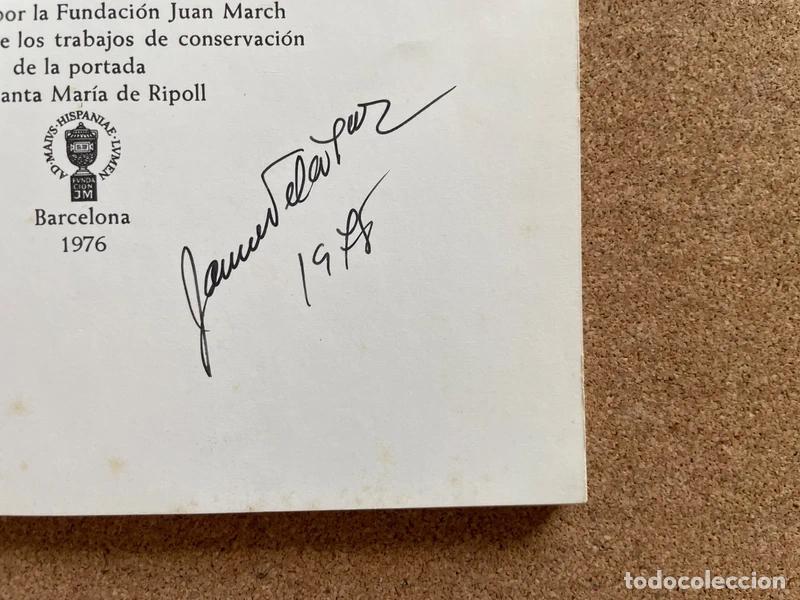 por la Fundación Juan March
e los trabajos de conservación
de la portada
anta María de Ripoll
AD·MAIVS·HISPANIAE·LVMEN
FVNDA
CION
JM
Barcelona
1976
1978
todocoleccion